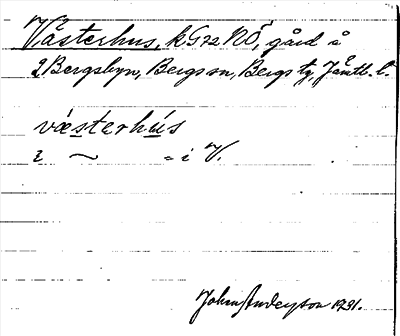 Västerhus, k G 72 NÖ, gård å
2 Bergsbyn, Bergs sn, Bergs tg, Jämtl. l.
væsterhús
i ~ = i V.
John Anderson 1931.